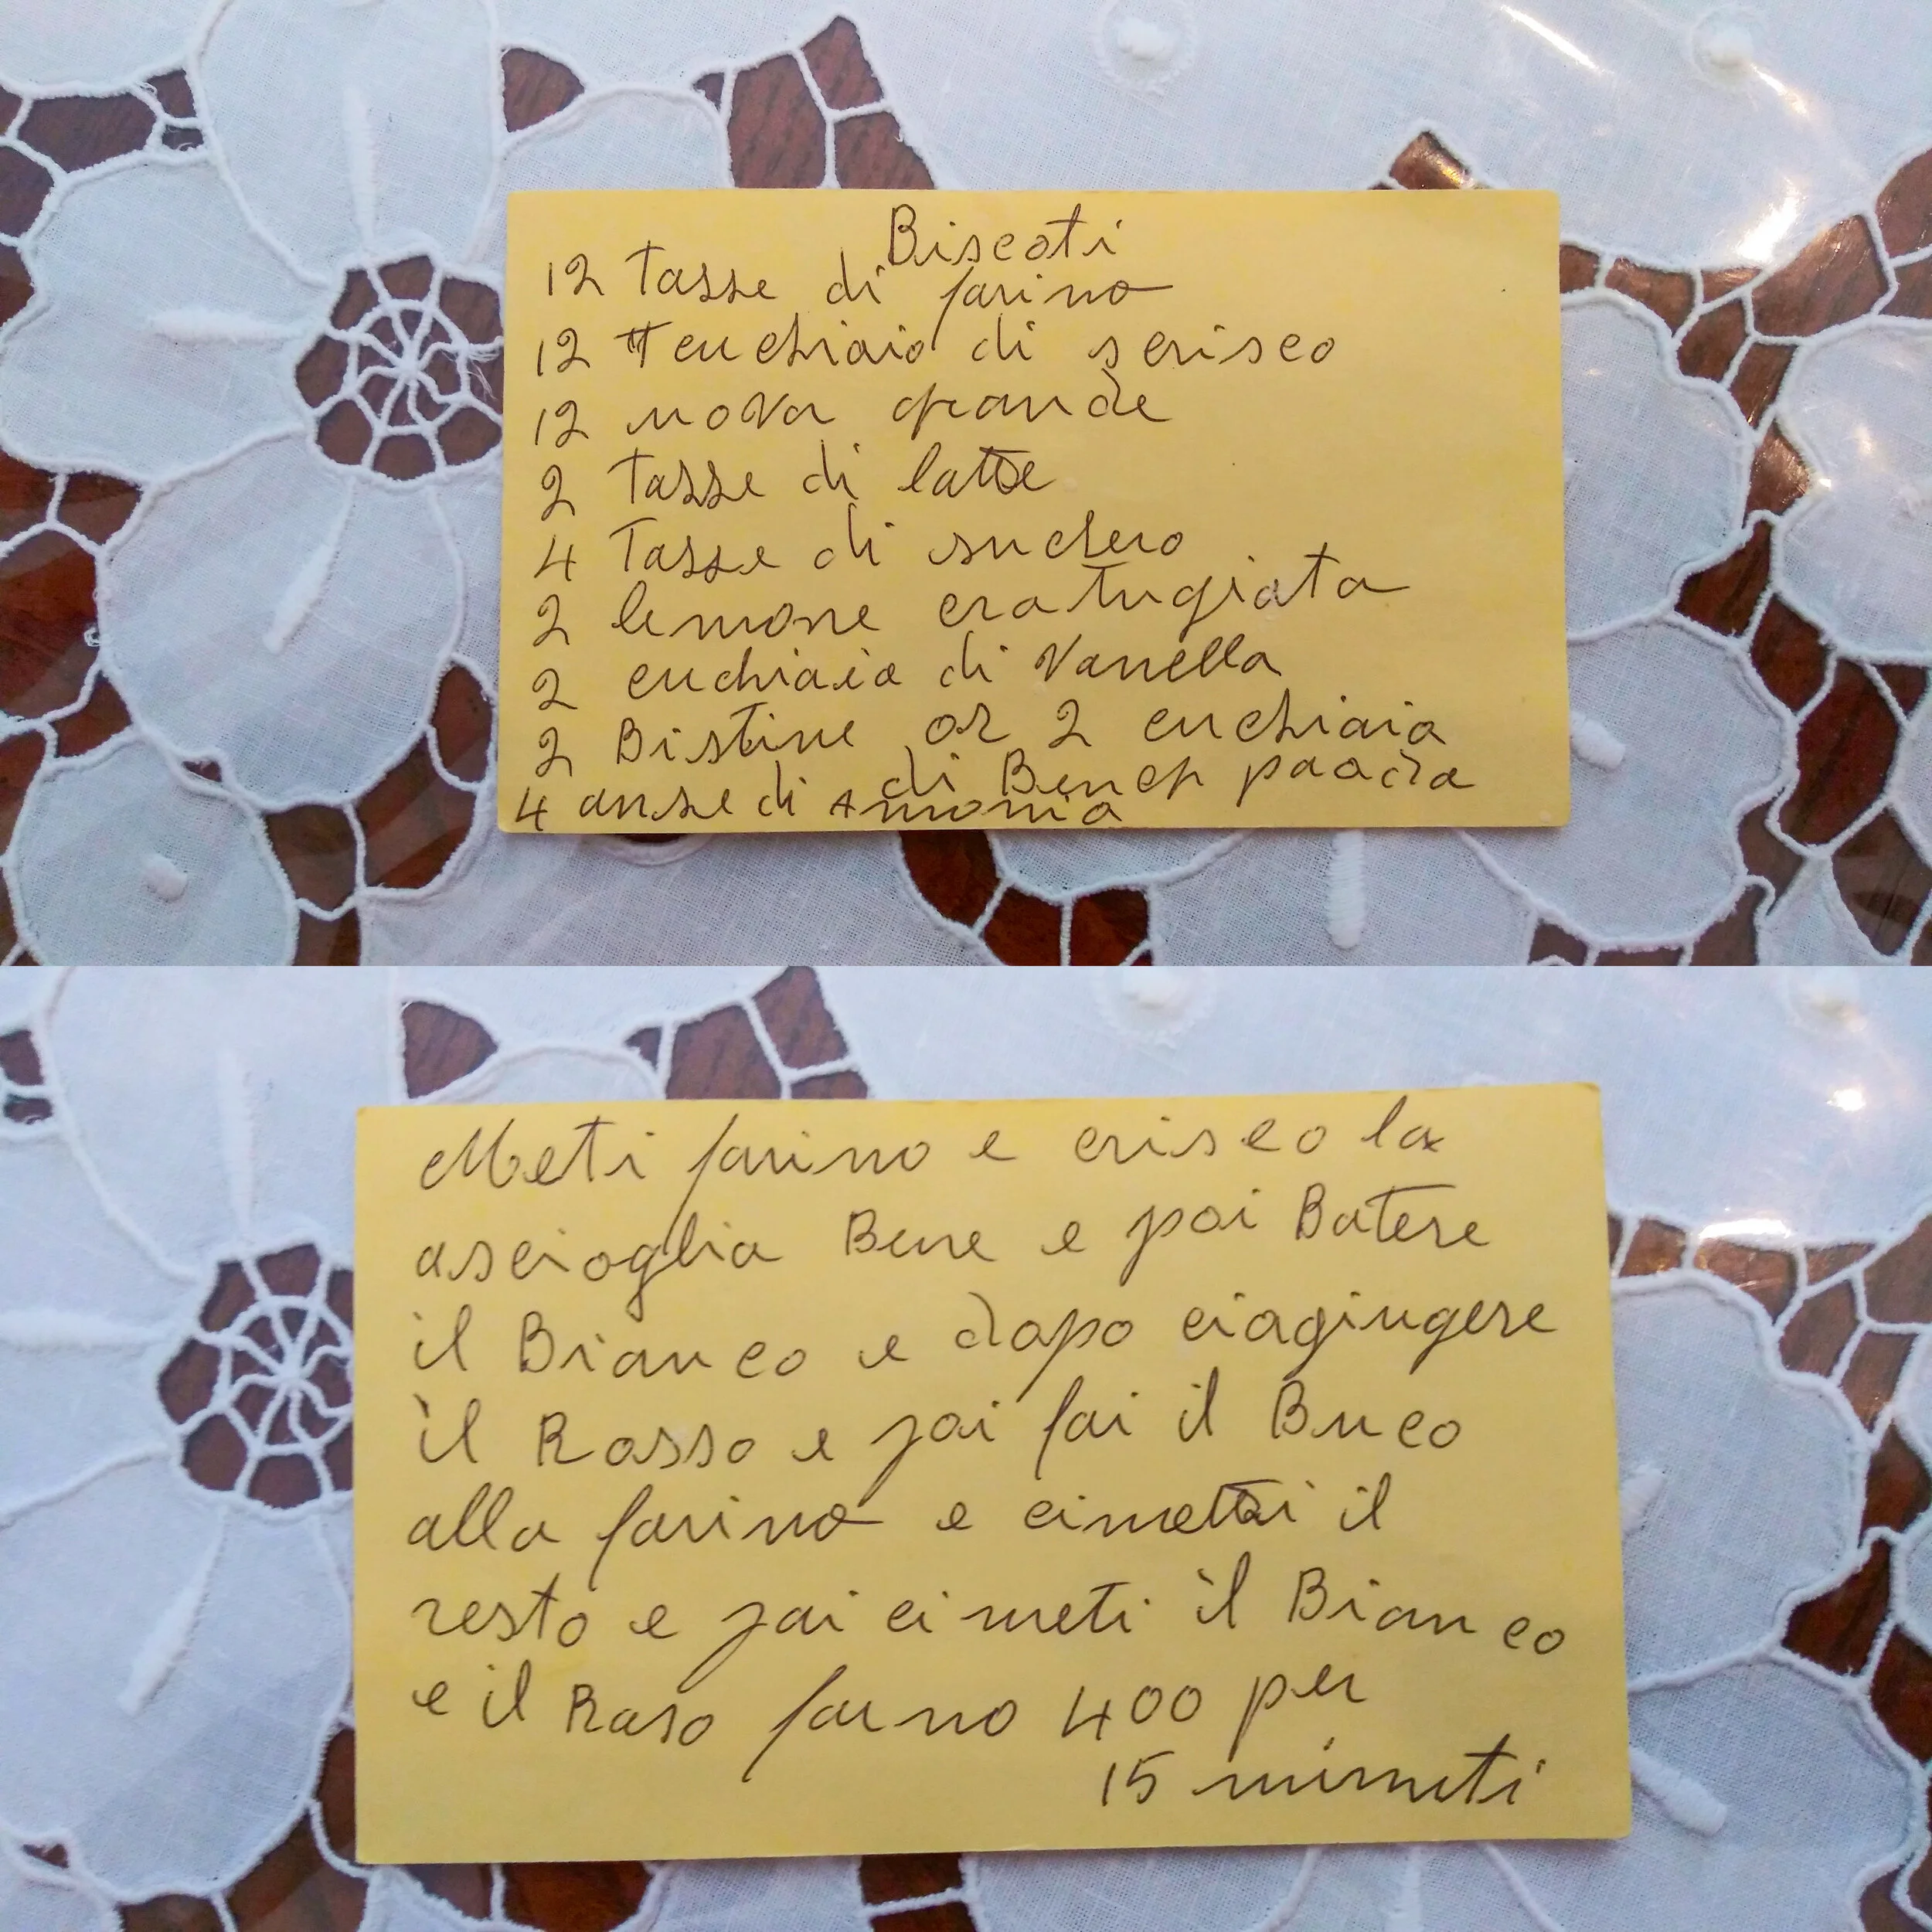 Biscoti
12 Tasse di farino
12 cuchiaio di scrisco
12 uova grande
2 Tasse di latte
4 Tasse di suchero
2 lemone cratugiata
2 cuchiaio di Vanella
2 Bistine or 2 cuchiaia
di Bench paoda
4 anse di Amonia
Meti farino e criseo la
ascioglia Bene e poi Batere
il Bianco e dopo ciagiugere
il Rosso e poi fai il Buco
alla farino e cimetti il
resto e poi ci meti il Bianco
e il Raso farno 400 per
15 minuti